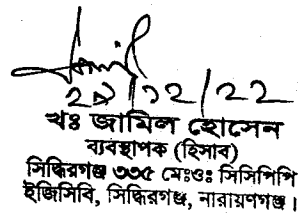 ২১/১২/২২
খঃ জামিল হোসেন
ব্যবস্থাপক (হিসাব)
সিদ্ধিরগঞ্জ ৩৩৫ মেঃওঃ সিসিপিপি
ইজিসিবি, সিদ্ধিরগঞ্জ, নারায়ণগঞ্জ।